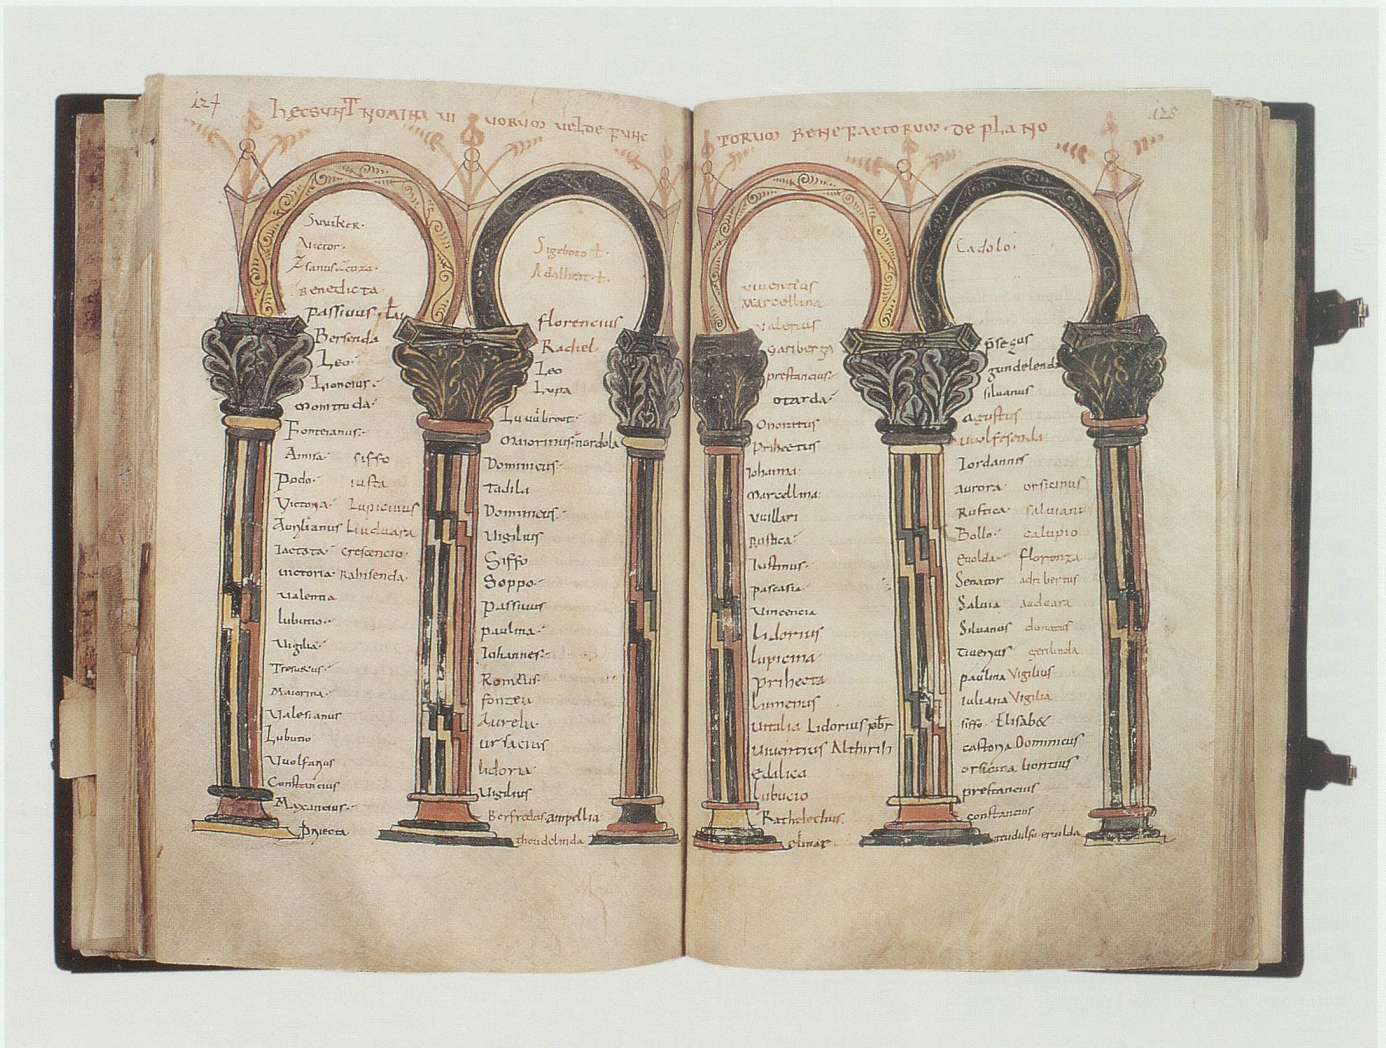 127
HEC SUNT NOMINA VI VORUM VEL DE FUNC
Suuiker
Auctor
Benedicta
passiuus
Bersenda
Leo
Lioncius
Montruda
Fonteianus
Anisa siffo
Podo iusta
Victoria Lupicinus
Aurilianus Liuduara
Iactata crescencio
uictoria Rahisenda
ualentia
lubucio
Virgilia
Maiorina
Valerianus
Lubucio
Vuolfarius
Constancius
Maxancius
proiecta
Sigeboto
Adalbert
florencius
Rachel
Leo
Lupa
Liuuibrot
maiorinus nordola
Dominicus
Tadila
Dominicus
Vigilius
Siffo
Soppo
passiuus
paulina
Iohannes
Romeus
fonteia
Aurelia
ursacius
lidoria
Vigilius
Berfredas ampellia
theudelinda
125
TORUM BENEFACTORUM DE PLANO
uiuentius
Marcellina
Valerius
Gariberga
prestancius
otarda
Onoratus
Proiectus
Iohanna
Marcellina
Vuillari
Rustica
Iustinus
pascasia
Vincencia
Lidorius
lupicina
proiecta
Lumenus
Vitalia Lidorius pbr
Viuentius Althirih
Edalica
lubucio
Rathelethus
elinar
Cadolo
gundelenda
siluanus
agustus
uuolfesenda
Iordannis
aurora orsicinus
Rustica saluiani
Bollo calupio
Euolda florenza
Senator adribertus
Saluia audoara
Siluanus donatus
gerlinda
paulina Vigilius
Iuliana Vigilia
siffo Elisabet
castoria Dominicus
orsicina liontius
prestancius
constancius